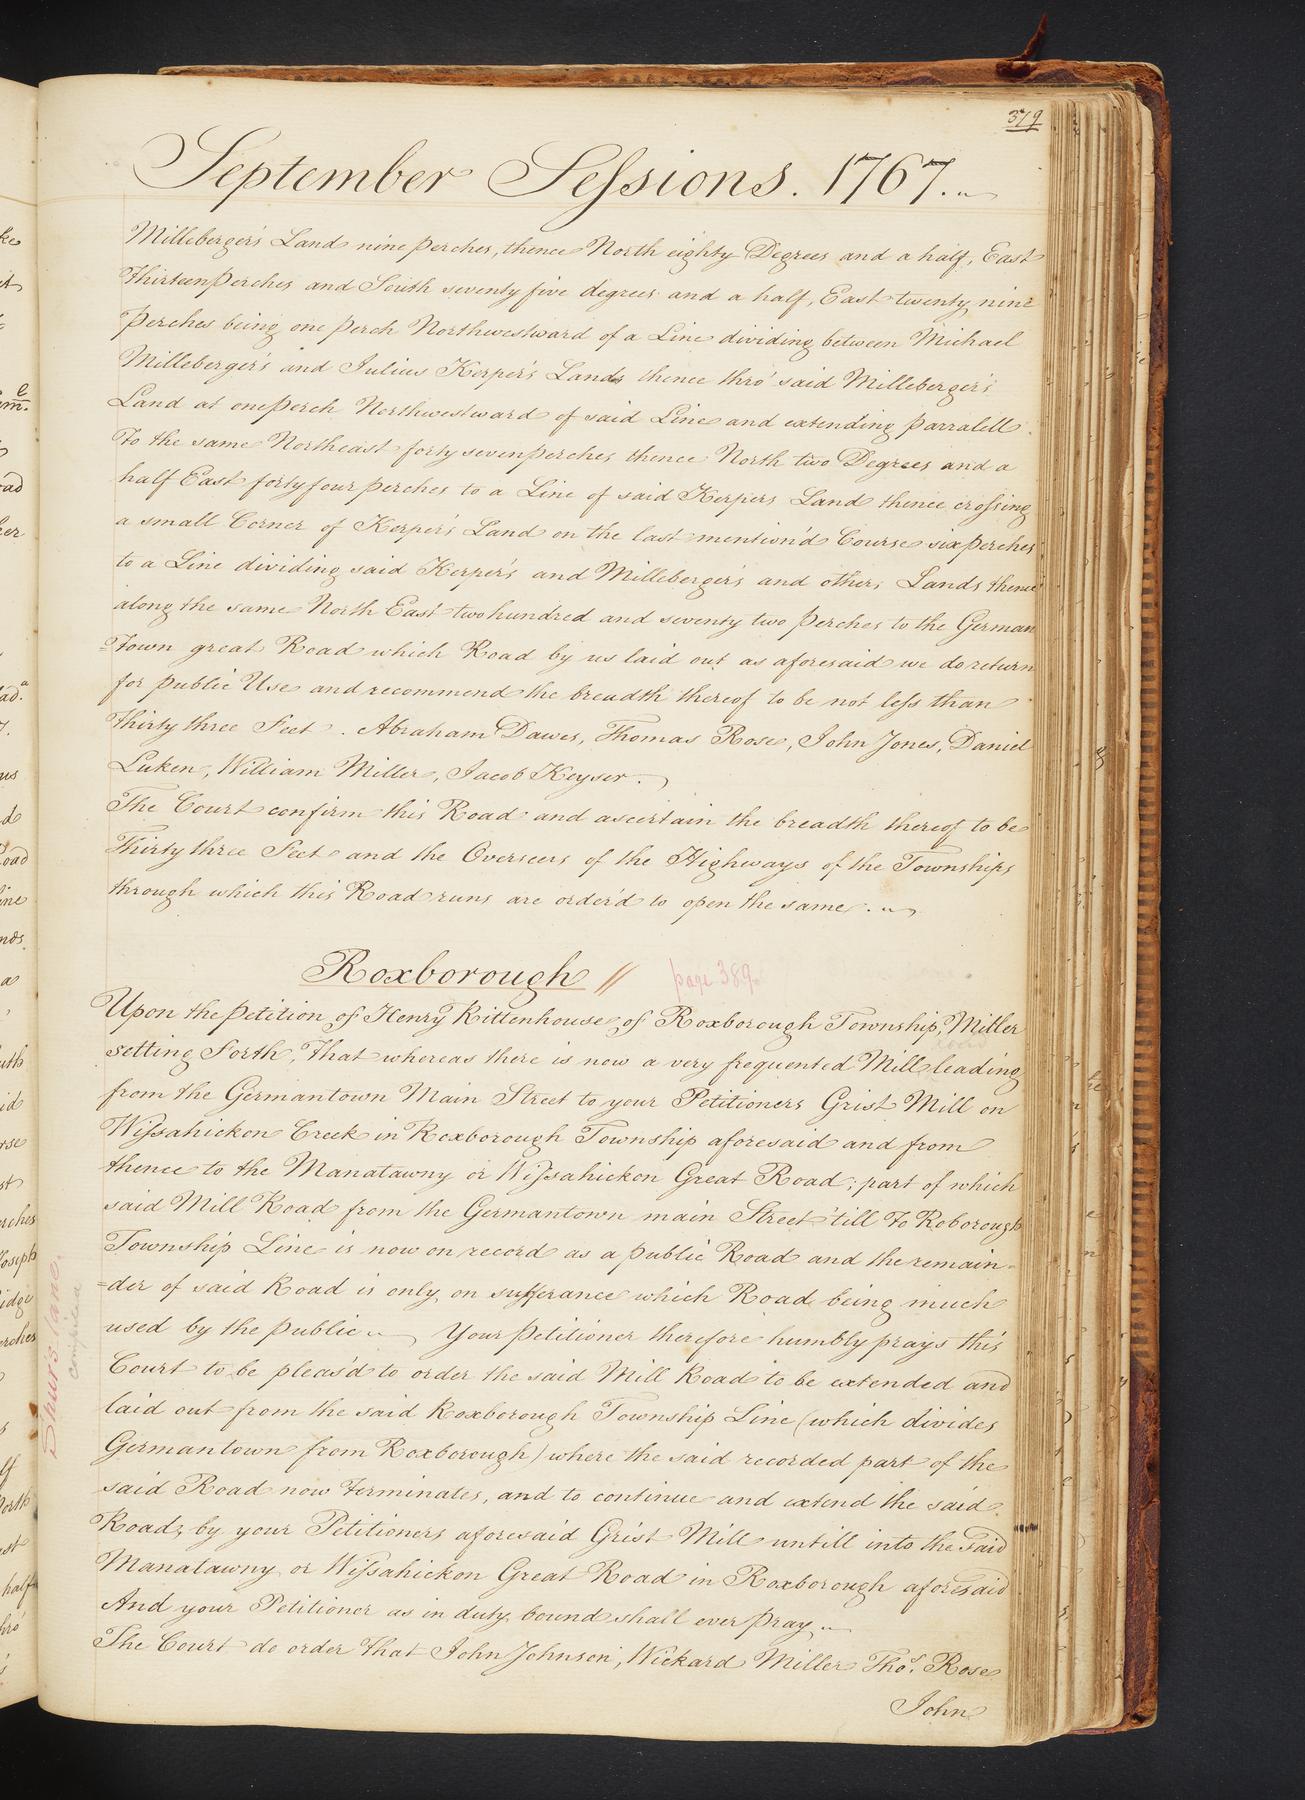 379
September Sessions. 1767.
Milleberger's Land nine perches, thence North eighty Degrees and a half, East
Thirteen perches and South seventy five degrees and a half, East twenty nine
perches being one perch Northwestward of a Line dividing between Michael
Milleberger's and Julius Kerper's Lands thence thro' said Milleberger's
Land at one perch Northwestward of said Line and extending parralell
To the same Northeast forty seven perches thence North two Degrees and a
half East forty four perches to a Line of said Kerpers Land thence crossing
a small Corner of Kerper's Land on the last mention'd Course six perches
to a Line dividing said Kerper's and Milleberger's and others Lands thence
along the same North East two hundred and seventy two perches to the German
=Town great Road which Road by us laid out as aforesaid we do return
for public Use and recommend the breadth thereof to be not less than
Thirty three Feet. Abraham Dawes, Thomas Rose, John Jones, Daniel
Luken, William Miller, Jacob Keyser.
The Court confirm this Road and ascertain the breadth thereof to be
Thirty three Feet and the Overseers of the Highways of the Townships
through which this Road runs are order'd to open the same.
Roxborough // page 389
Upon the petition of Henry Rittenhouse of Roxborough Township, Miller
setting Forth, That whereas there is now a very frequented Mill leading
road
from the Germantown Main Street to your Petitioners Grist Mill on
Wissahickon Creek in Roxborough Township aforesaid and from
thence to the Manatawny or Wissahickon Great Road; part of which
said Mill Road from the Germantown main Street 'till To Roborough
Township Line is now on record as a public Road and the remain=
=der of said Road is only on sufferance which Road being much
used by the public Your petitioner therefore humbly prays this
Court to be pleas'd to order the said Mill Road to be extended and
laid out from the said Roxborough Township Line (which divides
Germantown from Roxborough) where the said recorded part of the
said Road now Terminates, and to continue and extend the said
Road, by your Petitioners aforesaid Grist Mill untill into the said
Manatawny or Wissahickon Great Road in Roxborough aforesaid
And your Petitioner as in duty bound shall ever pray
The Court do order That John Johnson, Wickard Miller Thos. Rose
John
Shurs lane.